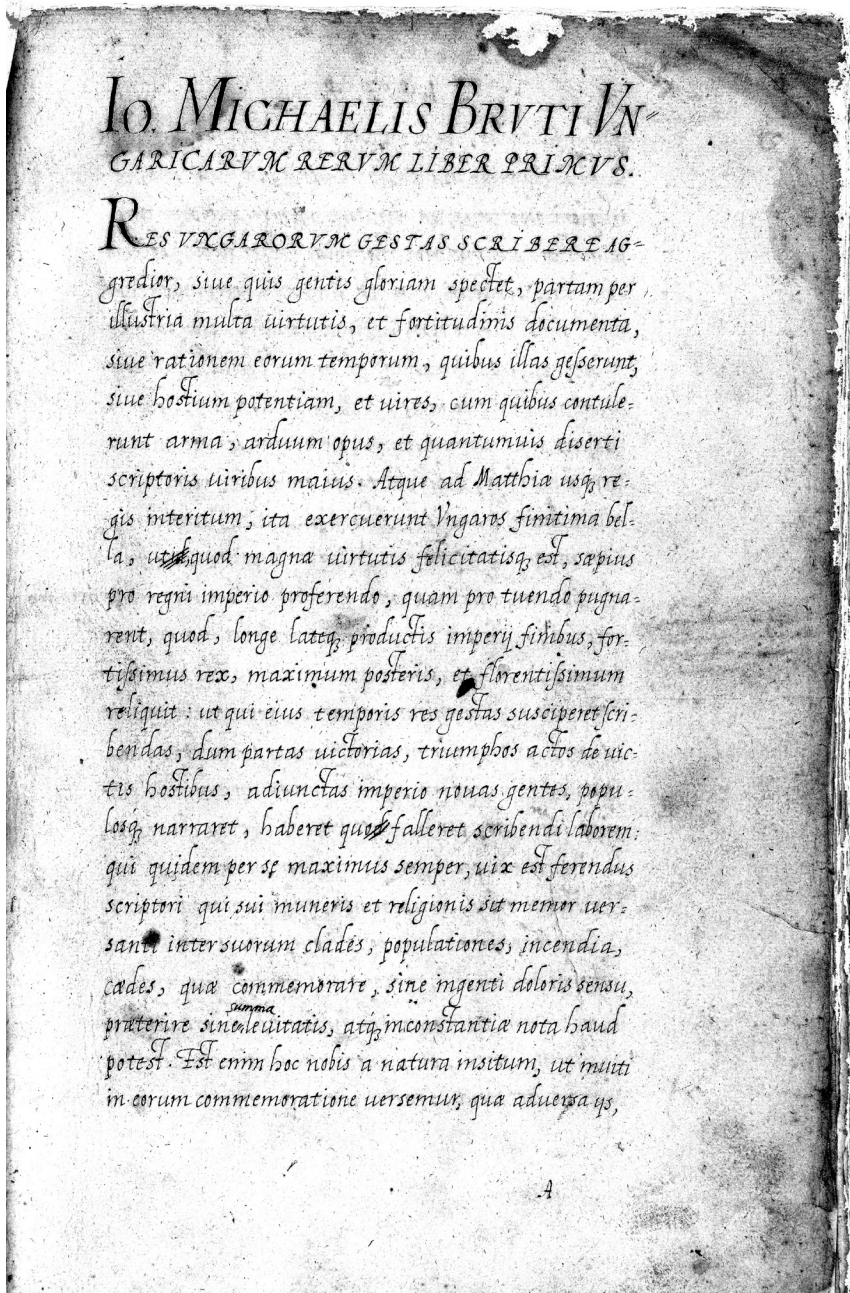 IO. MICHAELIS BRVTI VN=
GARICARVM RERVM LIBER PRIMVS.
RES VNGARORVM GESTAS SCRIBERE AG=
gredior, siue quis gentis gloriam spectet, partam per
illustria multa uirtutis, et fortitudinis documenta,
siue rationem eorum temporum, quibus illas gesserunt,
siue hostium potentiam, et uires, cum quibus contule=
runt arma, arduum opus, et quantumuis diserti
scriptoris uiribus maius. Atque ad Matthiæ usq; re=
gis interitum, ita exercuerunt Vngaros finitima bel=
la, ut quod magnæ uirtutis felicitatisq; est, sæpius
pro regni imperio proferendo, quam pro tuendo pugna=
rent, quod, longe lateq; productis imperij finibus, for=
tissimus rex, maximum posteris, et florentissimum
reliquit: ut qui eius temporis res gestas susciperet scri=
bendas, dum partas uictorias, triumphos actos de uic=
tis hostibus, adiunctas imperio nouas gentes, popu=
losq; narraret, haberet quo falleret scribendi laborem:
qui quidem per se maximus semper, uix est ferendus
scriptori qui sui muneris et religionis sit memor uer=
santi inter suorum clades, populationes, incendia,
cædes, quæ commemorare, sine ingenti doloris sensu,
præterire sine summa leuitatis, atq; inconstantiæ nota haud
potest. Est enim hoc nobis a natura insitum, ut inuiti
in eorum commemoratione uersemur, quæ aduersa ijs,
A